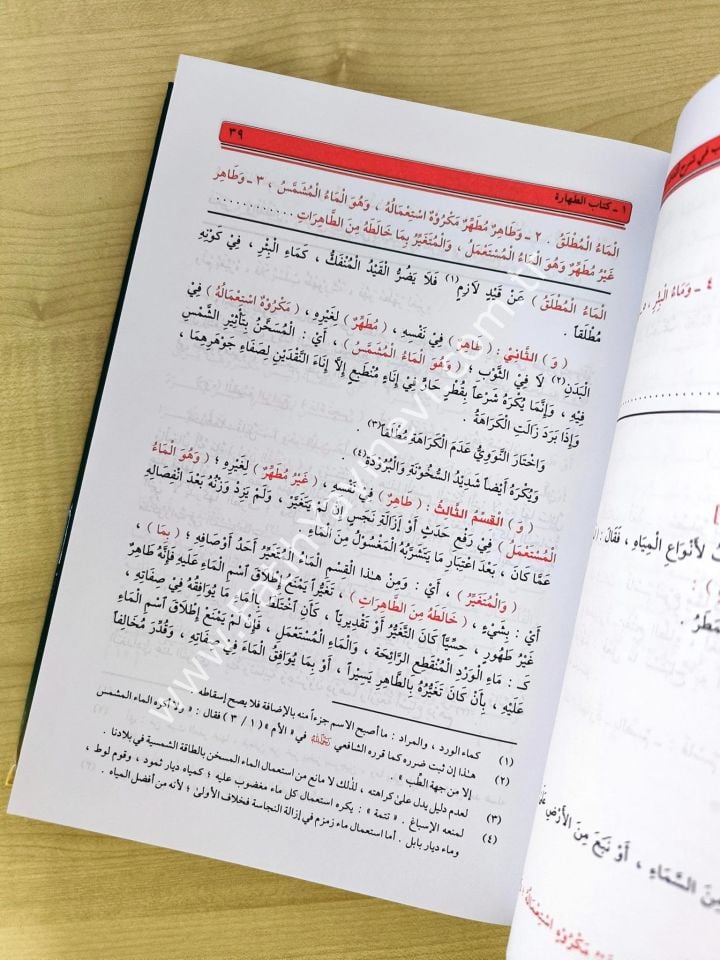 ٣٩
١ - كتاب الطهارة
الْمَاءُ الْمُطْلَقُ . ٢ - وَطَاهِرٌ مُطَهِّرٌ مَكْرُوهٌ اسْتِعْمَالُهُ ، وَهُوَ الْمَاءُ الْمُشَمَّسُ ، ٣ - وَطَاهِرٌ
غَيْرُ مُطَهِّرٍ وَهُوَ الْمَاءُ الْمُسْتَعْمَلُ ، وَالْمُتَغَيِّرُ بِمَا خَالَطَهُ مِنَ الطَّاهِرَاتِ ............
الْمَاءُ الْمُطْلَقُ ) عَنْ قَيْدٍ لَازِمٍ(١) فَلَا يَضُرُّ الْقَيْدُ الْمُنْفَكُّ ، كَمَاءِ الْبِئْرِ ، فِي كَوْنِهِ
مُطْلَقاً .
( وَ ) الثَّانِي : ( طَاهِرٌ ) فِي نَفْسِهِ ، ( مُطَهِّرٌ ) لِغَيْرِهِ ، ( مَكْرُوهٌ اسْتِعْمَالُهُ ) فِي
الْبَدَنِ(٢) لَا فِي الثَّوْبِ ؛ ( وَهُوَ الْمَاءُ الْمُشَمَّسُ ) ، أَيْ : الْمُسَخَّنُ بِتَأْثِيرِ الشَّمْسِ
فِيهِ ، وَإِنَّمَا يُكْرَهُ شَرْعاً بِقُطْرٍ حَارٍّ فِي إِنَاءٍ مُنْطَبِعٍ إِلَّا إِنَاءَ النَّقْدَيْنِ لِصَفَاءِ جَوْهَرِهِمَا ،
وَإِذَا بَرَدَ زَالَتِ الْكَرَاهَةُ .
وَاخْتَارَ النَّوَوِيُّ عَدَمَ الْكَرَاهَةِ مُطْلَقاً(٣) .
وَيُكْرَهُ أَيْضاً شَدِيدُ السُّخُونَةِ وَالْبُرُودَةِ(٤) .
( وَ ) الْقِسْمُ الثَّالِثُ : ( طَاهِرٌ ) فِي نَفْسِهِ ، ( غَيْرُ مُطَهِّرٍ ) لِغَيْرِهِ ؛ ( وَهُوَ الْمَاءُ
الْمُسْتَعْمَلُ ) فِي رَفْعِ حَدَثٍ أَوْ إِزَالَةِ نَجَسٍ إِنْ لَمْ يَتَغَيَّرْ ، وَلَمْ يَزِدْ وَزْنُهُ بَعْدَ انْفِصَالِهِ
عَمَّا كَانَ ، بَعْدَ اعْتِبَارِ مَا يَتَشَرَّبُهُ الْمَغْسُولُ مِنَ الْمَاءِ .
( وَالْمُتَغَيِّرُ ) ، أَيْ : وَمِنْ هَـٰذَا الْقِسْمِ الْمَاءُ الْمُتَغَيِّرُ أَحَدُ أَوْصَافِهِ ؛ ( بِمَا ) ،
أَيْ : بِشَيْءٍ ، ( خَالَطَهُ مِنَ الطَّاهِرَاتِ ) ، تَغَيُّراً يَمْنَعُ إِطْلَاقَ اسْمِ الْمَاءِ عَلَيْهِ فَإِنَّهُ طَاهِرٌ
غَيْرُ طَهُورٍ ، حِسِّيّاً كَانَ التَّغَيُّرُ أَوْ تَقْدِيرِيّاً ، كَأَنِ اخْتَلَطَ بِالْمَاءِ مَا يُوَافِقُهُ فِي صِفَاتِهِ ،
كَـ : مَاءِ الْوَرْدِ الْمُنْقَطِعِ الرَّائِحَةِ ، وَالْمَاءِ الْمُسْتَعْمَلِ ، فَإِنْ لَمْ يَمْنَعْ إِطْلَاقَ اسْمِ الْمَاءِ
عَلَيْهِ ، بِأَنْ كَانَ تَغَيُّرُهُ بِالطَّاهِرِ يَسِيْراً ، أَوْ بِمَا يُوَافِقُ الْمَاءَ فِي صِفَاتِهِ ، وَقُدِّرَ مُخَالِفاً
(١) كماء الورد ، والمراد : ما أصبح الاسم جزءاً منه بالإضافة فلا يصح إسقاطه .
(٢) هـٰذا إن ثبت ضرره كما قرره الشافعي في « الأم » ( ١ / ٣ ) فقال : « ولا أكره الماء المشمس
إلا من جهة الطِّب » .
(٣) لعدم دليل يدل على كراهته ، لذلك لا مانع من استعمال الماء المسخن بالطاقة الشمسية في بلادنا .
(٤) لمنعه الإسباغ . « تتمة » : يكره استعمال كل ماء مغضوب عليه ؛ كمياه ديار ثمود ، وقوم لوط ،
وماء ديار بابل . أما استعمال ماء زمزم في إزالة النجاسة فخلاف الأولى ؛ لأنه من أفضل المياه .
٤ - وَمَاءُ الْبِئْرِ
لِأَنْوَاعِ الْمِيَاهِ ، فَقَالَ :
مِنَ السَّمَاءِ ، أَوْ نَبَعَ مِنَ الْأَرْضِ
مَكْرُوهٌ